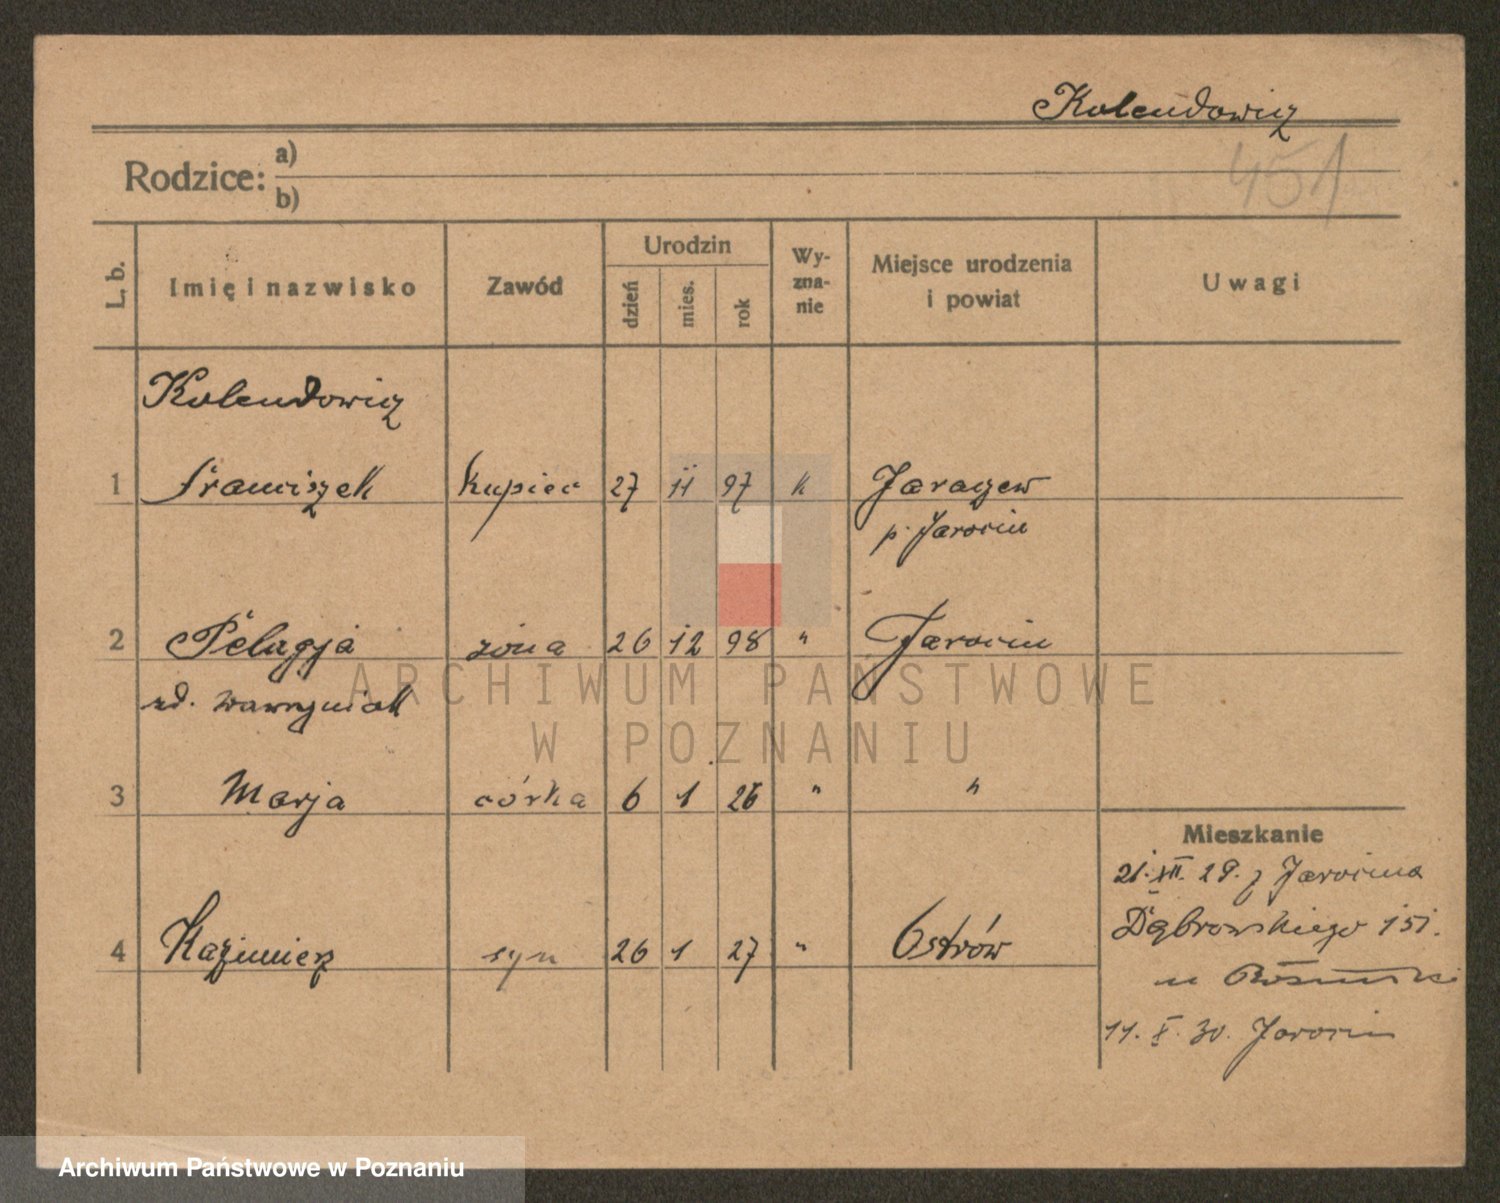 Kolendowicz
451
Rodzice: a)
b)
L. b. Imię i nazwisko Zawód Urodzin dzień mies. rok Wy-zna-nie Miejsce urodzenia i powiat Uwagi
Kolendowicz
1 Franciszek kupiec 27 11 97 k Jaraczew
p. Jarocin
2 Pelagja żona 26 12 98 " Jarocin
zd. Wawrzyniak
ARCHIWUM PAŃSTWOWE
W POZNANIU
3 Marja córka 6 1 26 " "
Mieszkanie
21. XII. 29. z Jarocina
Dąbrowskiego 151.
4 Kazimierz syn 26 1 27 " Ostrów
u
11. X. 30. Jarocin
Archiwum Państwowe w Poznaniu